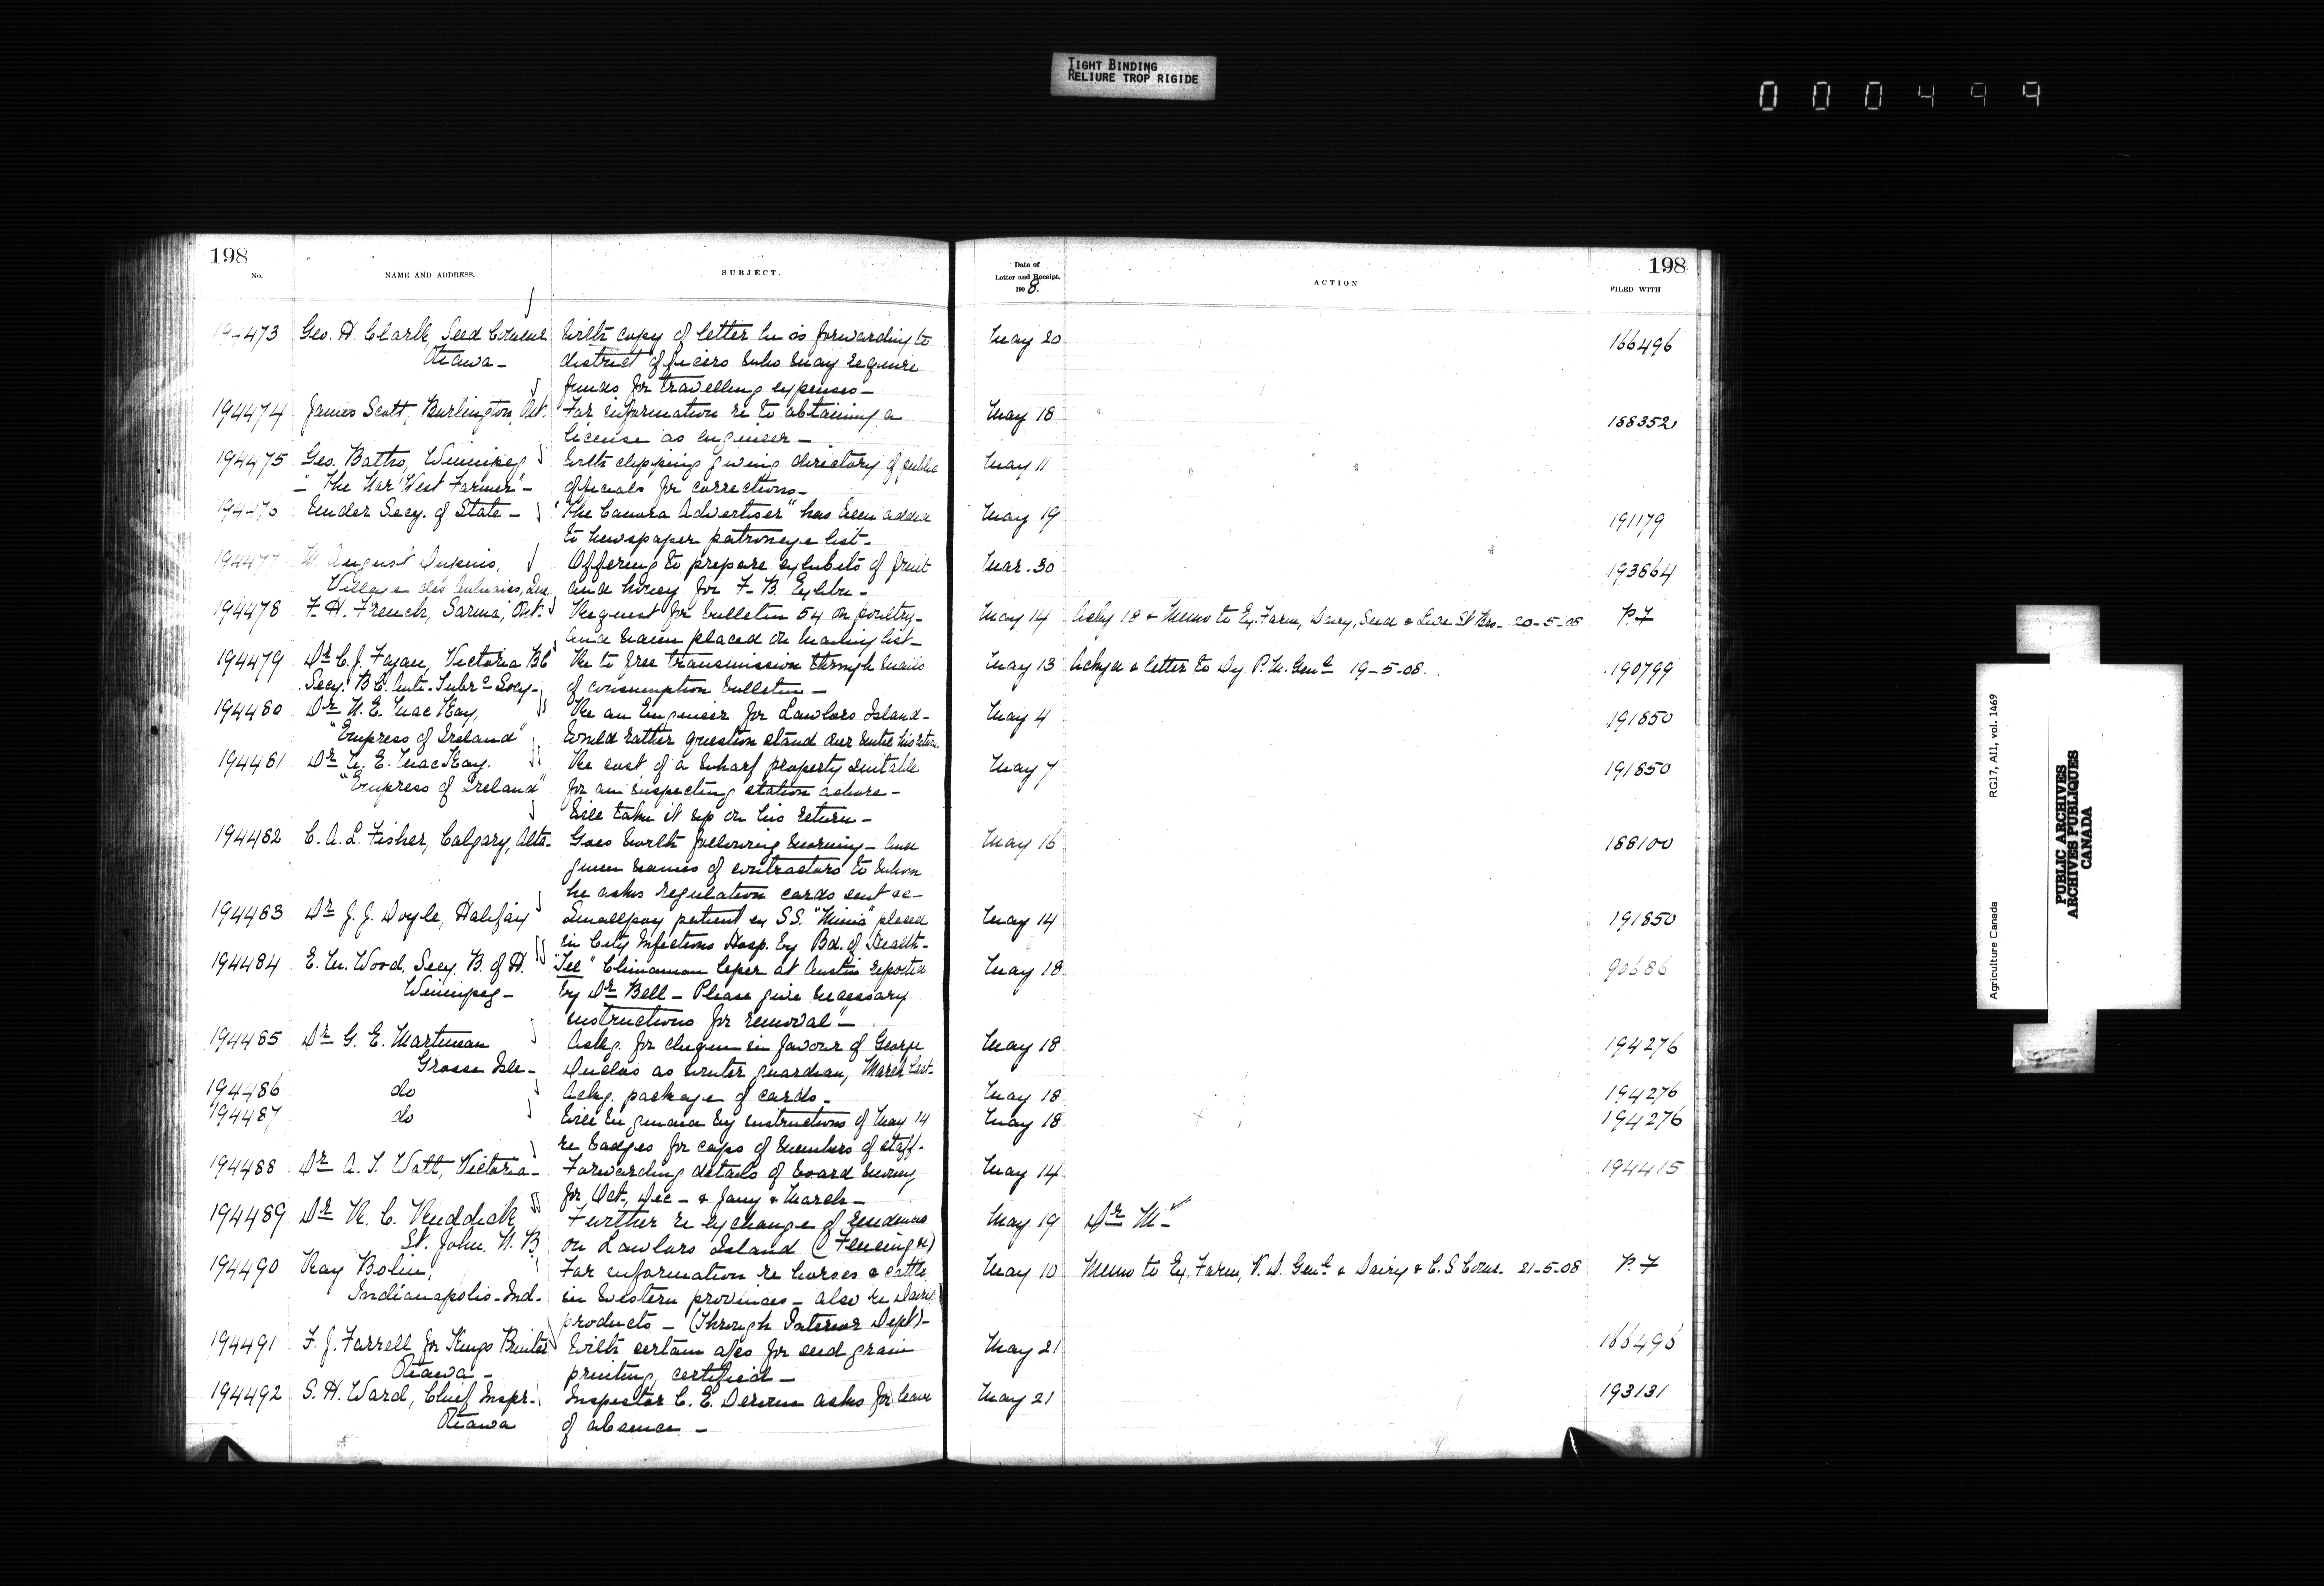 TIGHT BINDING
RELIURE TROP RIGIDE
000499
198
No.
NAME AND ADDRESS.
SUBJECT.
Date of
Letter and Receipt.
1908.
ACTION
198
FILED WITH
473 Geo. H. Clark, Seed Commr With copy of letter he is forwarding to May 20 166496
Ottawa - district officers who may require
funds for travelling expenses -
194474 James Scott, Burlington, Ont. For information re to obtaining a May 18 188352
license as engineer -
194475 Geo. Batho, Winnipeg With clipping giving directory of public May 11
- "The Nor' West Farmer" - officials for corrections -
194476 Under Secy. of State - "The Canora Advertiser" has been added May 19 191179
to newspaper patronage list -
194477 M. August Dupuis, Offering to prepare exhibits of fruit Mar. 30 193864
Village des Aulnaies, Que and honey for F. B. Exhbn -
194478 F. H. French, Sarnia, Ont. Request for bulletin 54 on poultry - May 14 Ackg 18 & Memo to Ex. Farm, Dairy, Seed & Live St Brs - 20-5-08 P.F
and name placed on mailing list -
194479 Dr C. J. Fagan, Victoria B.C. Re to free transmission through mails May 13 Ackgd & letter to Dy P. M. Genl 19-5-08. 190799
Secy. B.C. Anti-Tubr c Socy - of consumption bulletin -
194480 Dr N. E. MacKay, Re an Engineer for Lawlors Island - May 4 191850
"Empress of Ireland" Would rather question stand over until his return.
194481 Dr N. E. MacKay. Re cost of a wharf property suitable May 7 191850
"Empress of Ireland" for an inspecting station ashore -
Will take it up on his return -
194482 C. A. L. Fisher, Calgary, Alta - Goes north following morning - has May 16 188100
given names of contractors to whom
he asks regulation cards sent &c -
194483 Dr J. J. Doyle, Halifax Smallpox patient ex S.S. "Minia" placed May 14 191850
in City Infectious Hosp. by Bd. of Health -
194484 E. M. Wood, Secy. B. of H. "Lee" Chinaman leper at Austin reported May 18 90686
Winnipeg - by Dr Bell - Please give necessary
instructions for removal" -
194485 Dr G. E. Martineau Askg. for cheque in favour of George May 18 194276
Grosse Isle - Duclos as winter guardian, March last.
194486 do Ackg. package of cards - May 18 194276
194487 do Will be guided by instructions of May 14 May 18 194276
re badges for caps of members of staff -
194488 Dr A. T. Watt, Victoria - Forwarding details of board money May 14 194415
for Oct., Dec - & Jany & March -
194489 Dr R. C. Ruddick Further re exchange of residences May 19 Dr M -
St. John. N. B on Lawlors Island (Fleming re)
194490 Ray Bolin, For information re horses & cattle May 10 Memo to Ex. Farm, V. D. Genl & Dairy & C. S Comr - 21-5-08 P.F
Indianapolis - Ind - in western provinces - also re Dairy
products - (Through Interior Dept) -
194491 F. J. Farrell for Kings Printer With certain a/cs for seed grain May 21 166496
Ottawa - printing, certified -
194492 S. H. Ward, Chief Inspr - Inspector C. E. asks for leave May 21 193131
Ottawa of absence -
Agriculture Canada RG17, AII, vol. 1469
PUBLIC ARCHIVES
ARCHIVES PUBLIQUES
CANADA